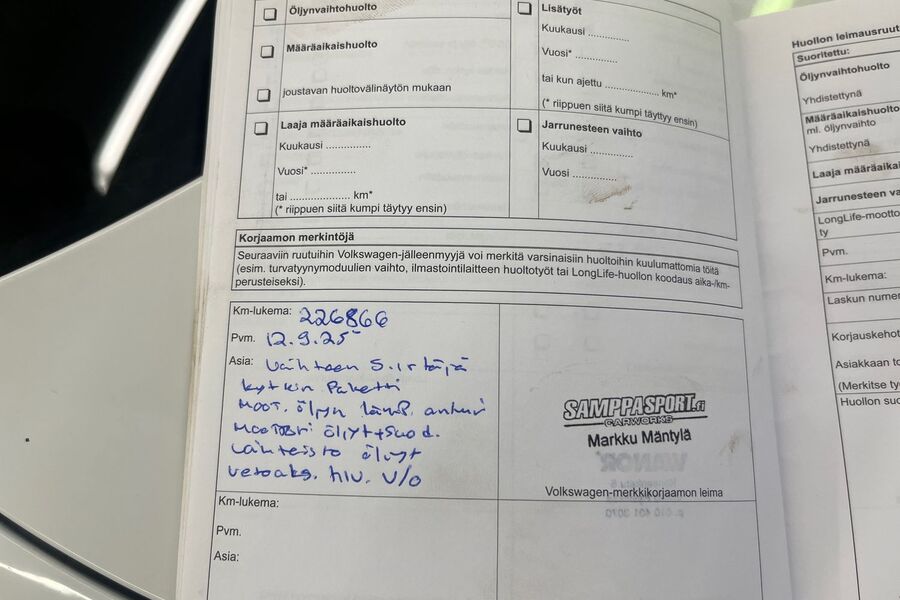 Öljynvaihtohuolto
Määräaikaishuolto
joustavan huoltovälinäytön mukaan
Lisätyöt
Kuukausi ..............
Vuosi* ..............
tai kun ajettu .................. km*
(* riippuen siitä kumpi täyttyy ensin)
Laaja määräaikaishuolto
Kuukausi ..............
Vuosi* ..............
tai .................. km*
(* riippuen siitä kumpi täytyy ensin)
Jarrunesteen vaihto
Kuukausi ..............
Vuosi ..............
Korjaamon merkintöjä
Seuraaviin ruutuihin Volkswagen-jälleenmyyjä voi merkitä varsinaisiin huoltoihin kuulumattomia töitä
(esim. turvatyynymoduulien vaihto, ilmastointilaitteen huoltotyöt tai LongLife-huollon koodaus aika-/km-
perusteiseksi).
Km-lukema: 226866
Pvm. 12.9.25
Asia: Vaihteen s.irtäjä
kytkin Paketti
moot. öljyn lämp. anturi
moottori öljyt+suod.
vaihteisto öljyt
vetoaks. niv. v/o
SAMPPASPORT.fi
CARWORKS
Markku Mäntylä
Volkswagen-merkkikorjaamon leima
Km-lukema:
Pvm.
Asia:
Huollon leimausruut
Suoritettu:
Öljynvaihtohuolto
Yhdistettynä
Määräaikaishuolto
ml. öljynvaihto
Yhdistettynä
Laaja määräaikais
Jarrunesteen vaihto
LongLife-mootto
ty
Pvm.
Km-lukema:
Laskun numer
Korjauskehot
Asiakkaan to
(Merkitse ty
Huollon suo